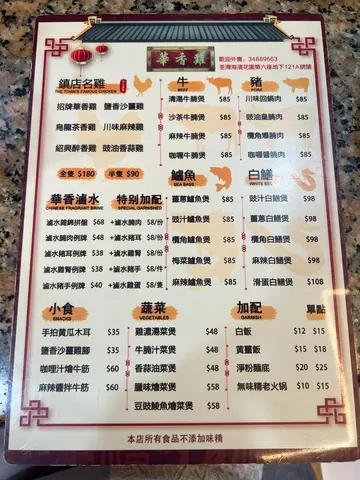 華香雞
歡迎外賣：34889663
荃灣海濱花園第六座地下121A號舖
鎮店名雞
THE TOWN'S FAMOUS CHICKEN
招牌華香雞 鹽香沙薑雞
烏龍茶香雞 川味麻辣雞
紹興醉香雞 豉油香蒜雞
全隻 $180 半隻 $90
牛
BEEF
清湯牛腩煲 $85
沙茶牛腩煲 $85
麻辣牛腩煲 $85
咖喱牛腩煲 $85
豬
PORK
川味回鍋肉 $85
豉油皇腩肉 $85
欖角爆腩肉 $85
咖喱醬腩肉 $85
華香滷水
CHINESE FRAGRANT BRINE
滷水雜錦拼盤 $68
滷水腩肉例牌 $48
滷水豬耳例牌 $38
滷水雞腎例牌 $38
滷水豬手例牌 $40
特別加配
SPECIAL GARNISHED
+滷水腩肉 $8/份
+滷水豬耳 $8/份
+滷水雞腎 $8/份
+滷水豬手 $8/份
+滷水雞蛋 $8/隻
鱸魚
SEA BASS
薑蔥鱸魚煲 $85
豉汁鱸魚煲 $85
欖角鱸魚煲 $85
梅菜鱸魚煲 $85
麻辣鱸魚煲 $85
白鱔
WHITE EEL
豉汁白鱔煲 $98
薑蔥白鱔煲 $98
欖角白鱔煲 $98
麻辣白鱔煲 $98
滑蛋白鱔煲 $108
小食
SNACKS
手拍黄瓜木耳 $35
鹽香沙薑雞腳 $35
咖喱汁燴牛筋 $60
麻辣醬拌牛筋 $60
蔬菜
VEGETABLES
雞濃湯菜煲 $48
牛腩汁菜煲 $48
香蒜油菜煲 $48
臘味燴菜煲 $58
豆豉鯪魚燴菜煲 $58
加配 單點
GARNISH
白飯 $12 $15
黄薑飯 $15 $18
淨粉麵底 $20 $25
無味精老火锅 $10 $15
本店所有食品不添加味精